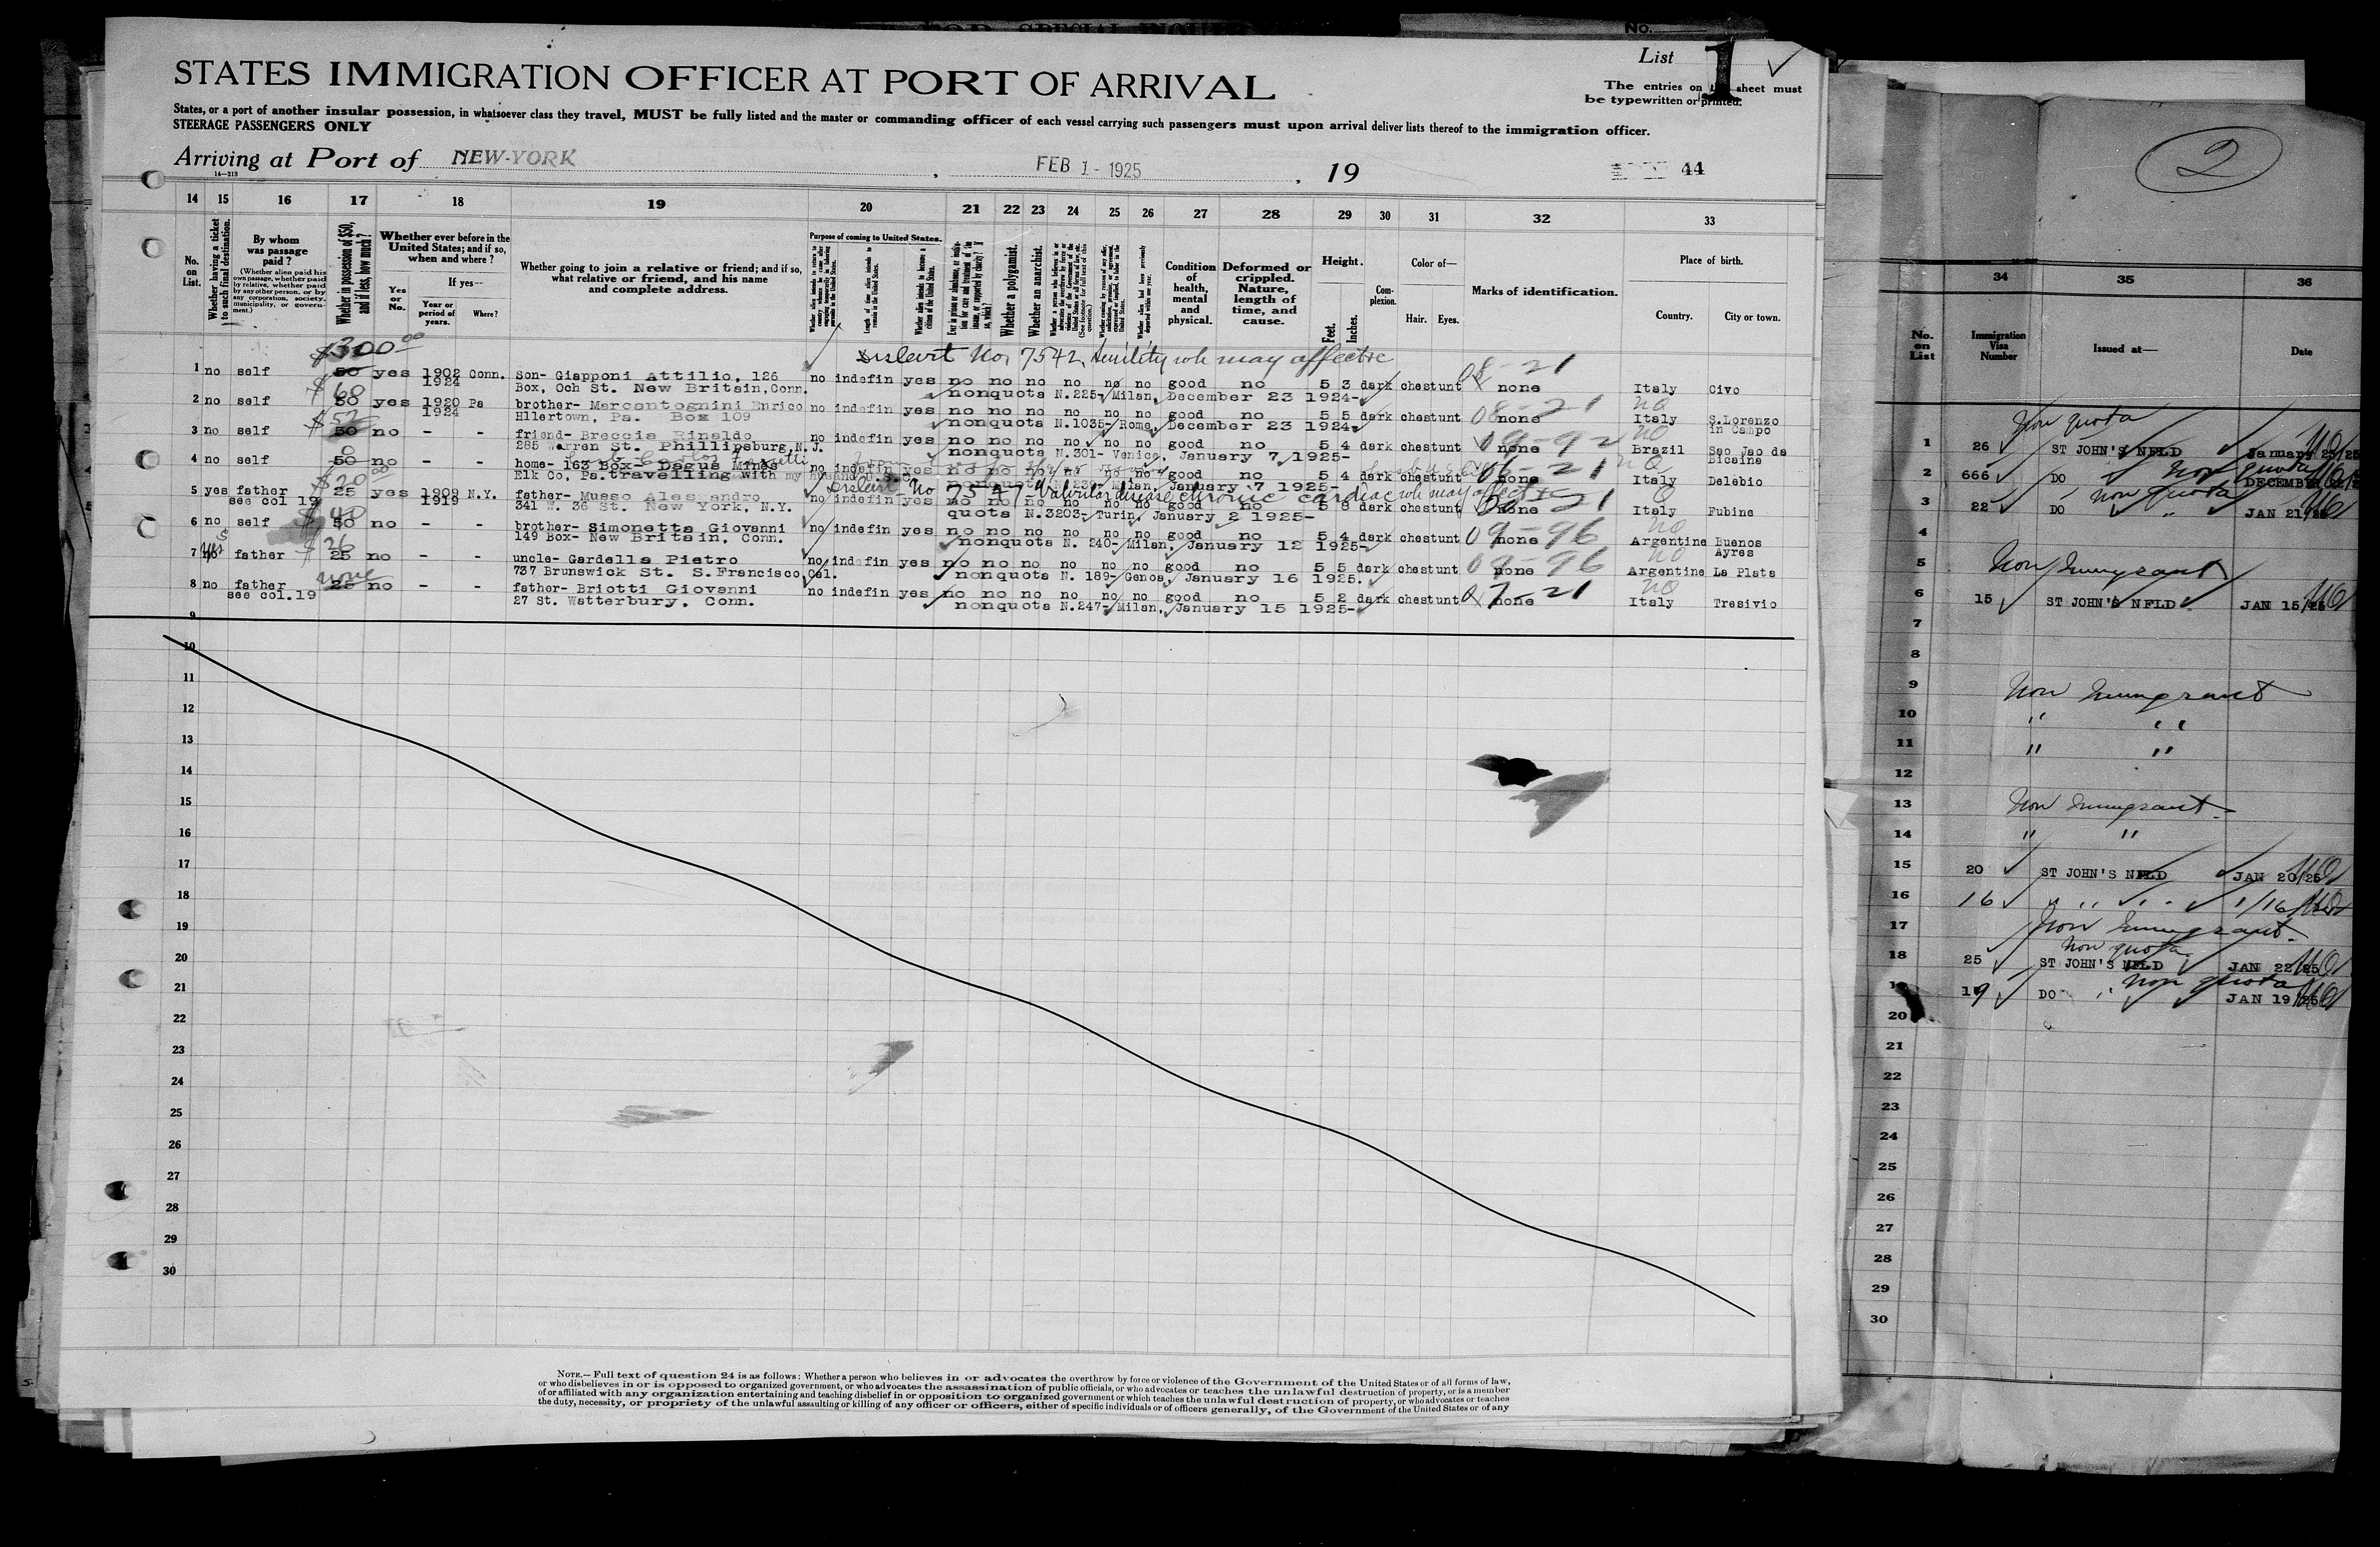 No.
List 1
STATES IMMIGRATION OFFICER AT PORT OF ARRIVAL
The entries on sheet must
be typewritten or printed.
States, or a port of another insular possession, in whatsoever class they travel, MUST be fully listed and the master or commanding officer of each vessel carrying such passengers must upon arrival deliver lists thereof to the immigration officer.
STEERAGE PASSENGERS ONLY
Arriving at Port of NEW-YORK, FEB 1 - 1925, 19 44
14—213
14 15 16 17 18 19 20 21 22 23 24 25 26 27 28 29 30 31 32 33
No. on List.
Whether having a ticket to such final destination.
By whom was passage paid?
(Whether alien paid his own passage, whether paid by relative, whether paid by any other person, or by any corporation, society, municipality, or government.)
Whether in possession of $50, and if less, how much?
Whether ever before in the United States; and if so, when and where?
Yes or No.
If yes—
Year or period of years.
Where?
Whether going to join a relative or friend; and if so, what relative or friend, and his name and complete address.
Purpose of coming to United States.
Length of time alien intends to remain in the United States.
Whether alien intends to become a citizen of the United States.
Whether a polygamist.
Whether an anarchist.
Condition of health, mental and physical.
Deformed or crippled. Nature, length of time, and cause.
Height.
Feet.
Inches.
Complexion.
Color of—
Hair. Eyes.
Marks of identification.
Place of birth.
Country.
City or town.
$300 00
No 7542, senility wh may affect
1 no self 50 yes 1902 1924 Conn. Son- Giapponi Attilio, 126 no indefin yes no no no no no no good no 5 3 dark chestunt 08-21 none Italy Civo
Box, Och St. New Britain, Conn. nonquota N.225- Milan, December 23 1924-
2 no self $68 50 yes 1920 1924 Pa brother- Mercantognini Enrico no indefin yes no no no no no no good no 5 5 dark chestunt 08-21 none NQ Italy S.Lorenzo in Campo
Hllertown, Pa. Box 109 nonquota N.1035- Rome, December 23 1924-
3 no self $52 50 no - - friend- Breccia Rinaldo no indefin yes no no no no no no good no 5 4 dark chestunt 09-92 none NQ Brazil Sao Jao da Bicaina
285 Warren St. Phillipsburg, N.J. nonquota N.301- Venice, January 7 1925-
4 no self 0 50 no - - home- 163 Box- Degus Mines no indefin yes no no no no no no good no 5 4 dark chestunt 06-21 none NQ Italy Delebio
Elk Co, Pa. travelling with my husband U.S.C. nonquota N.239- Milan, January 7 1925-
No 7547 - Valvular disease chronic cardiac wh may affect
5 yes father see col 19 $20 00 25 yes 1909 1919 N.Y. father- Musso Alessandro no indefin yes no no no no no no good no 5 8 dark chestunt 06-21 none Q Italy Fubine
341 W. 36 St. New York, N.Y. quota N.3203- Turin, January 2 1925-
6 no self $40 50 no - - brother- Simonetta Giovanni no indefin yes no no no no no no good no 5 4 dark chestunt 09-96 none NQ Argentine Buenos Ayres
149 Box- New Britain, Conn. nonquota N. 240- Milan, January 12 1925-
7 no yes father $26 25 no - - uncle- Gardella Pietro no indefin yes no no no no no no good no 5 5 dark chestunt 09-96 none NQ Argentine La Plata
737 Brunswick St. S.Francisco, Cal. nonquota N. 189- Genoa, January 16 1925.
8 no father see col.19 none 25 no - - father- Briotti Giovanni no indefin yes no no no no no no good no 5 2 dark chestunt 07-21 none NQ Italy Tresivio
27 St. Watterbury, Conn. nonquota N.247- Milan, January 15 1925-
9
10
11
12
13
14
15
16
17
18
19
20
21
22
23
24
25
26
27
28
29
30
NOTE.—Full text of question 24 is as follows: Whether a person who believes in or advocates the overthrow by force or violence of the Government of the United States or of all forms of law,
or who disbelieves in or is opposed to organized government, or who advocates the assassination of public officials, or who advocates or teaches the unlawful destruction of property, or is a member
of or affiliated with any organization entertaining and teaching disbelief in or opposition to organized government or which teaches the unlawful destruction of property, or who advocates or teaches
the duty, necessity, or propriety of the unlawful assaulting or killing of any officer or officers, either of specific individuals or of officers generally, of the Government of the United States or of any
2
34 35 36
No. on List
Immigration Visa Number
Issued at—
Date
Non quota
1 26 ST JOHN'S NFLD January 23/25
Non quota
2 666 DO DECEMBER
Non quota
3 22 DO " JAN 21/25
4
5 Non Immigrant
6 15 ST JOHN'S NFLD JAN 15/25
7
8
9 Non Immigrant
10 " "
11 " "
12
13 Non Immigrant
14 " "
15 20 ST JOHN'S NFLD JAN 20/25
16 16 " " " 1/16
17 Non Immigrant
Non quota
18 25 ST JOHN'S NFLD JAN 22/25
Non quota
19 DO " JAN 19/25
20
21
22
23
24
25
26
27
28
29
30